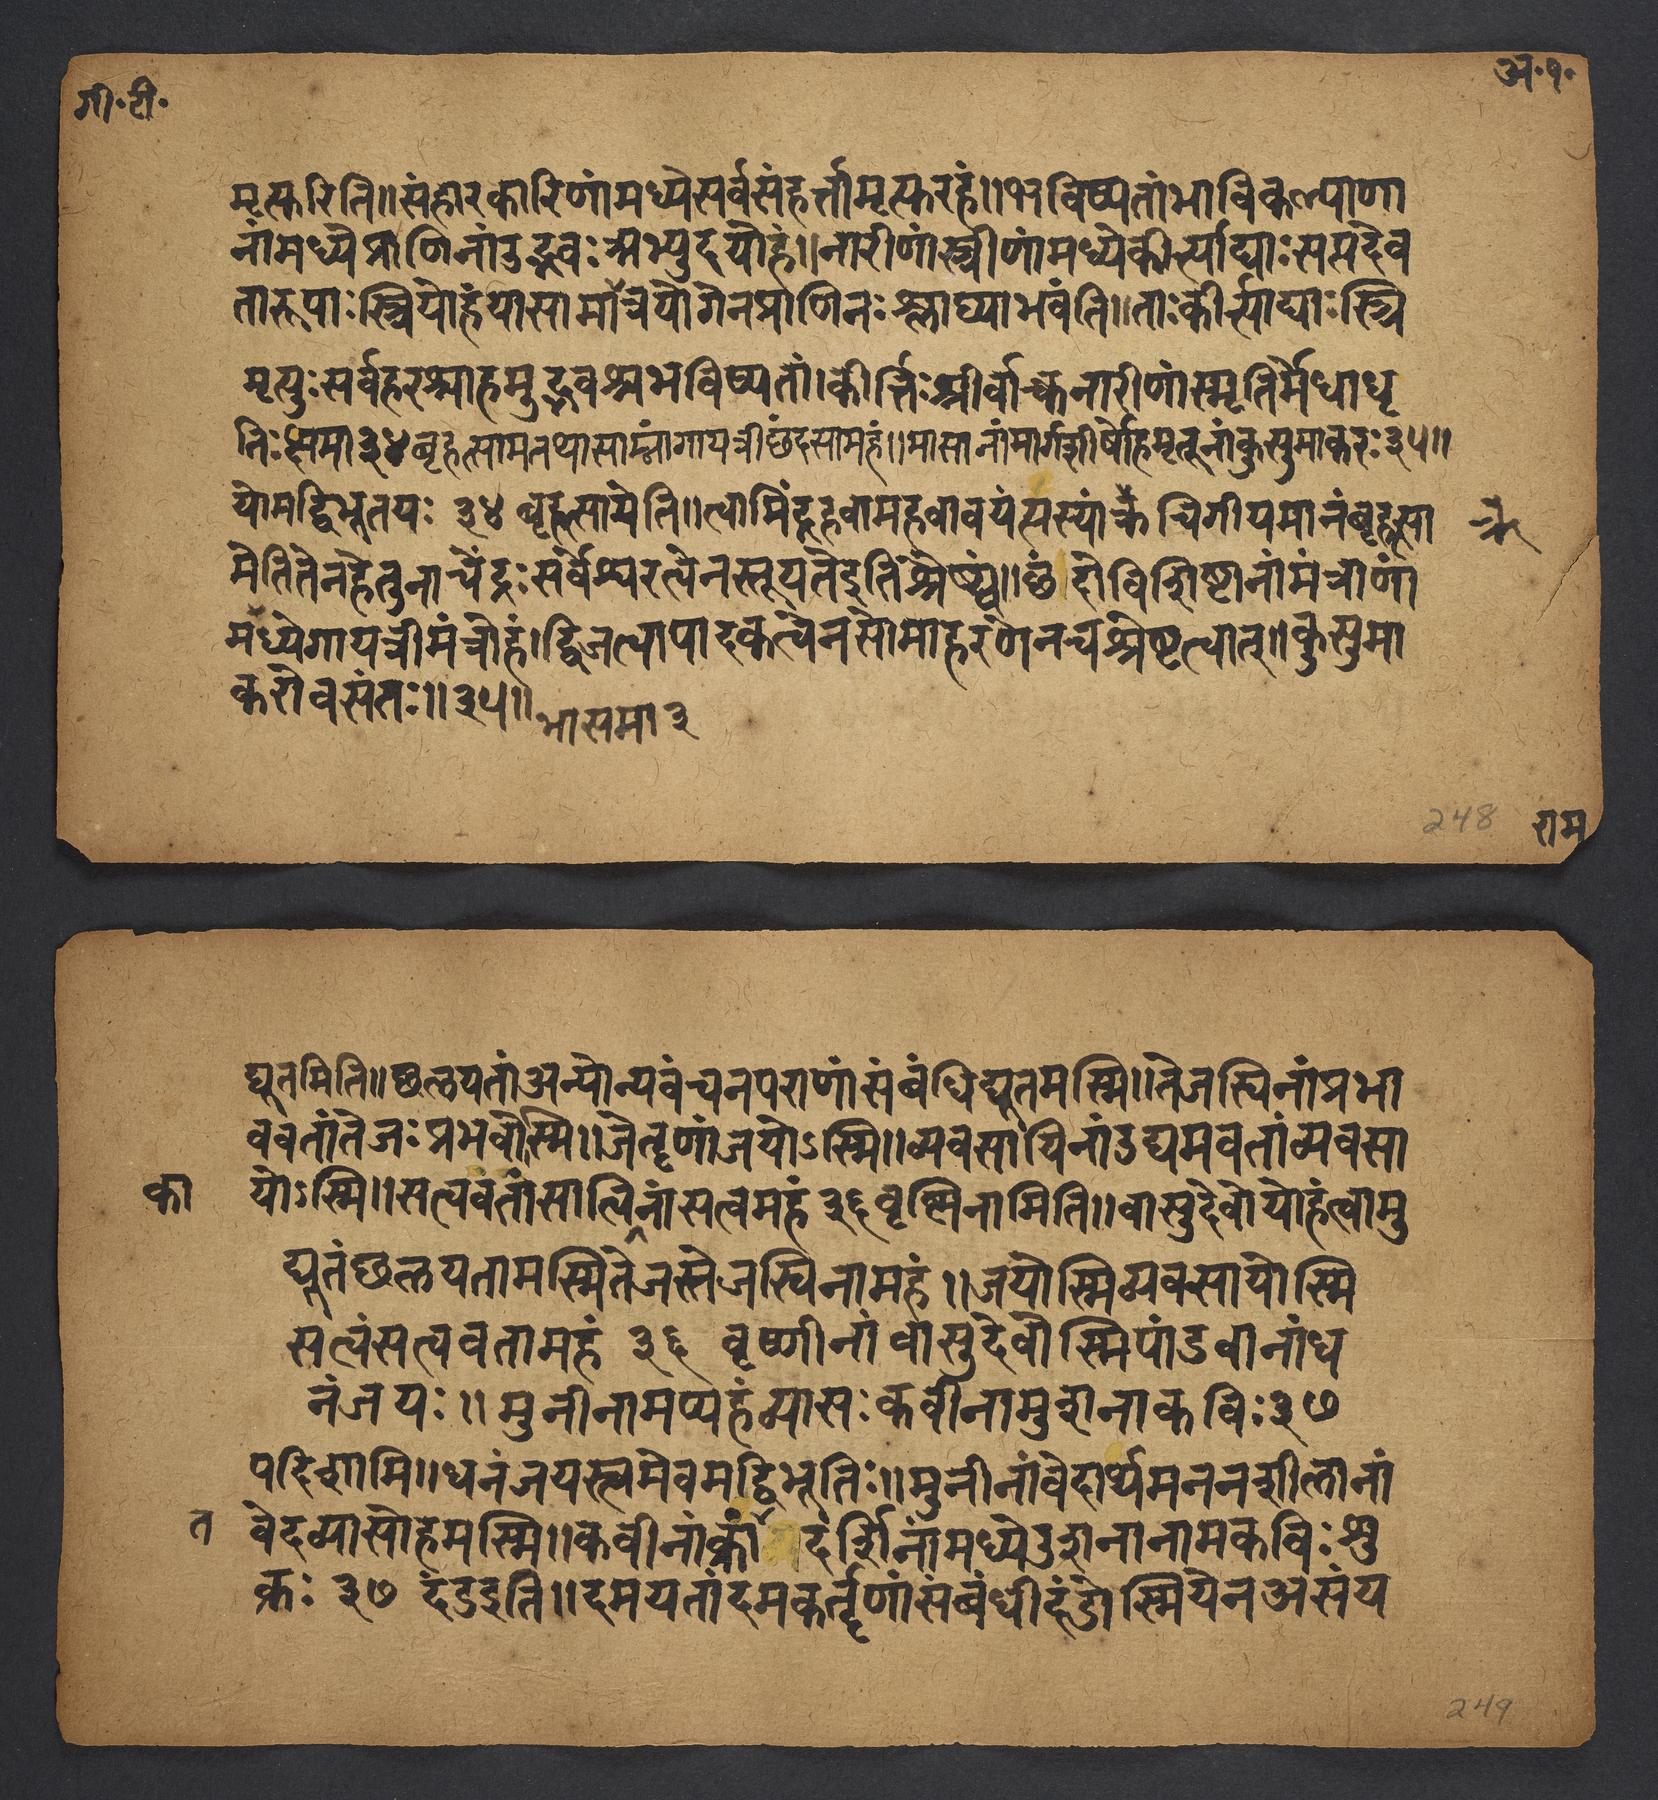 गी॰टी॰
अ॰१॰
मृत्युरिति॥संहारकारिणांमध्येसर्वसंहर्त्तामृत्युरहं॥भविष्यतांभाविकल्पाणा
नांमध्येप्राणिनांउद्भवःअभ्युदयोहं॥नारीणांस्त्रीणांमध्येकीर्त्याद्याःसप्तदेव
तारूपाःस्त्रियोहंयासामात्रयोगेनप्राणिनःश्लाघ्याभवंति॥ताःकीर्त्याद्याःस्त्रि
मृत्युःसर्वहरश्चाहमुद्भवश्चभविष्यतां।कीर्त्तिःश्रीर्वाच्कनारीणांस्मृतिर्मेधाधृ
तिःक्षमा३४बृहत्सामतथासाम्नांगायत्रीछंदसामहं॥मासानांमार्गशीर्षोहमृतूनांकुसुमाकरः३५॥
योमद्विभूतयः ३४ बृहत्सामेति॥त्वामिंद्रहवामहवावयंत्यस्यां चिगीयमानंबृहत्सा
मेतितेनहेतुनाचेंद्रःसर्वेश्वरत्वेनस्तूयतेइतिश्रेष्ठ्यं॥छंदोविशिष्टानांमंत्राणां
मध्येगायत्रीमंत्रोहं।द्विजत्वापादकत्वेनसोमाहरणेनचश्रेष्टत्वात्॥कुसुमा
करोवसंतः॥३५॥ भासमा३
248
राम
द्यूतमिति॥छलयतांअन्योन्यवंचनपराणांसंबंधिद्यूतमस्मि॥तेजस्विनांप्रभा
ववतांतेजःप्रभवोस्मि॥जेतॄणांजयोऽस्मि॥व्यवसायिनांउद्यमवतांव्यवसा
का
योऽस्मि॥सत्यवतांसात्विनांसत्वमहं ३६ वृष्णिनामिति॥वासुदेवोयोहंत्वामु
द्यूतंछलयतामस्मितेजस्तेजस्विनामहं ॥जयोस्मिव्यवसायोस्मि
सत्यंसत्यवतामहं ३६ वृष्णीनां वासुदेवोस्मिपांडवानांध
नंजयः॥ मुनीनामप्यहंव्यासःकवीनामुशनाकविः३७
पदिशामि॥धनंजयस्त्वमेवमद्विभूतिः॥मुनीनांवेदार्थमननशीलानां
त
वेदव्यासोहमस्मि॥कवीनांक्रां दर्शिनांमध्येउशनानामकविःशु
क्रः ३७ दंडइति॥दमयतांदमकर्तॄणांसंबंधीदंडोस्मियेनअसंय
249